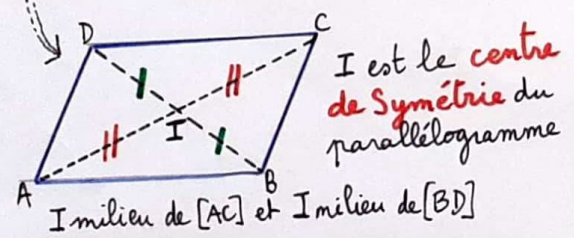 D
C
I est le centre
de Symétrie du
parallélogramme
I
A
B
I milieu de [AC] et I milieu de [BD]